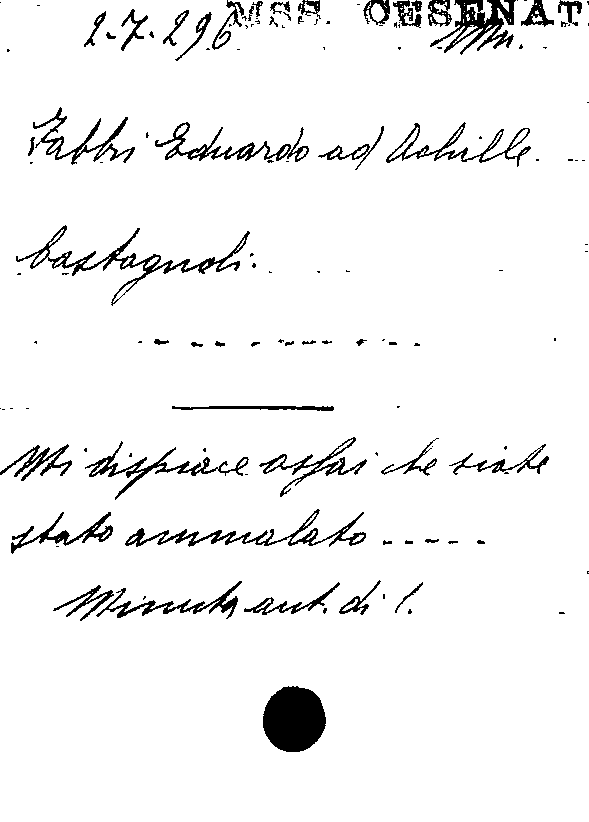 MSS. CESENATI
2-7-296 Mm.
Fabbri Eduardo ad Achille
Castagnoli.
Mi dispiace assai che siate
stato ammalato -----
Minuta aut. di 1.